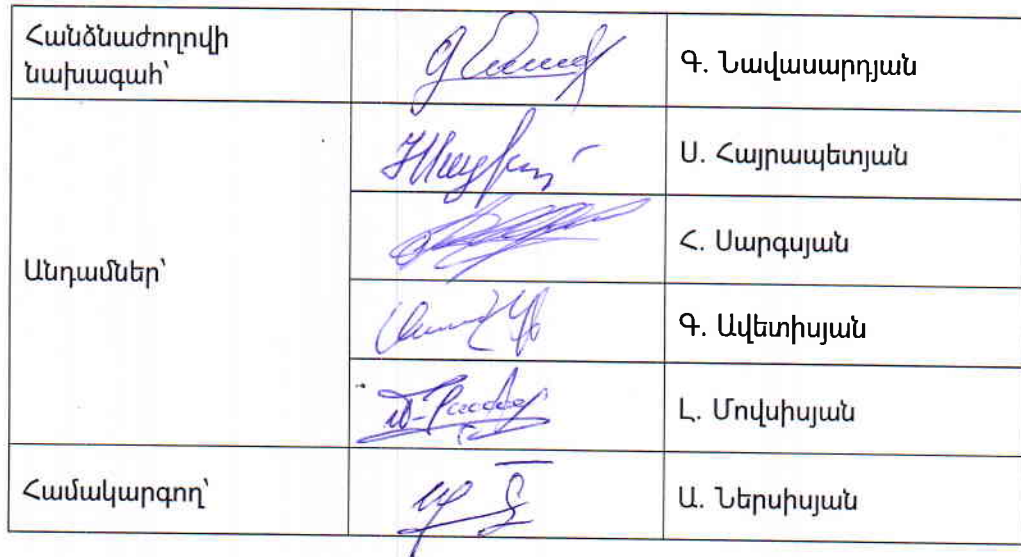 Հանձնաժողովի
նախագահ՝
Գ. Նավասարդյան
Անդամներ՝
Ս. Հայրապետյան
Հ. Սարգսյան
Գ. Ավետիսյան
Լ. Մովսիսյան
Համակարգող՝
Ա. Ներսիսյան